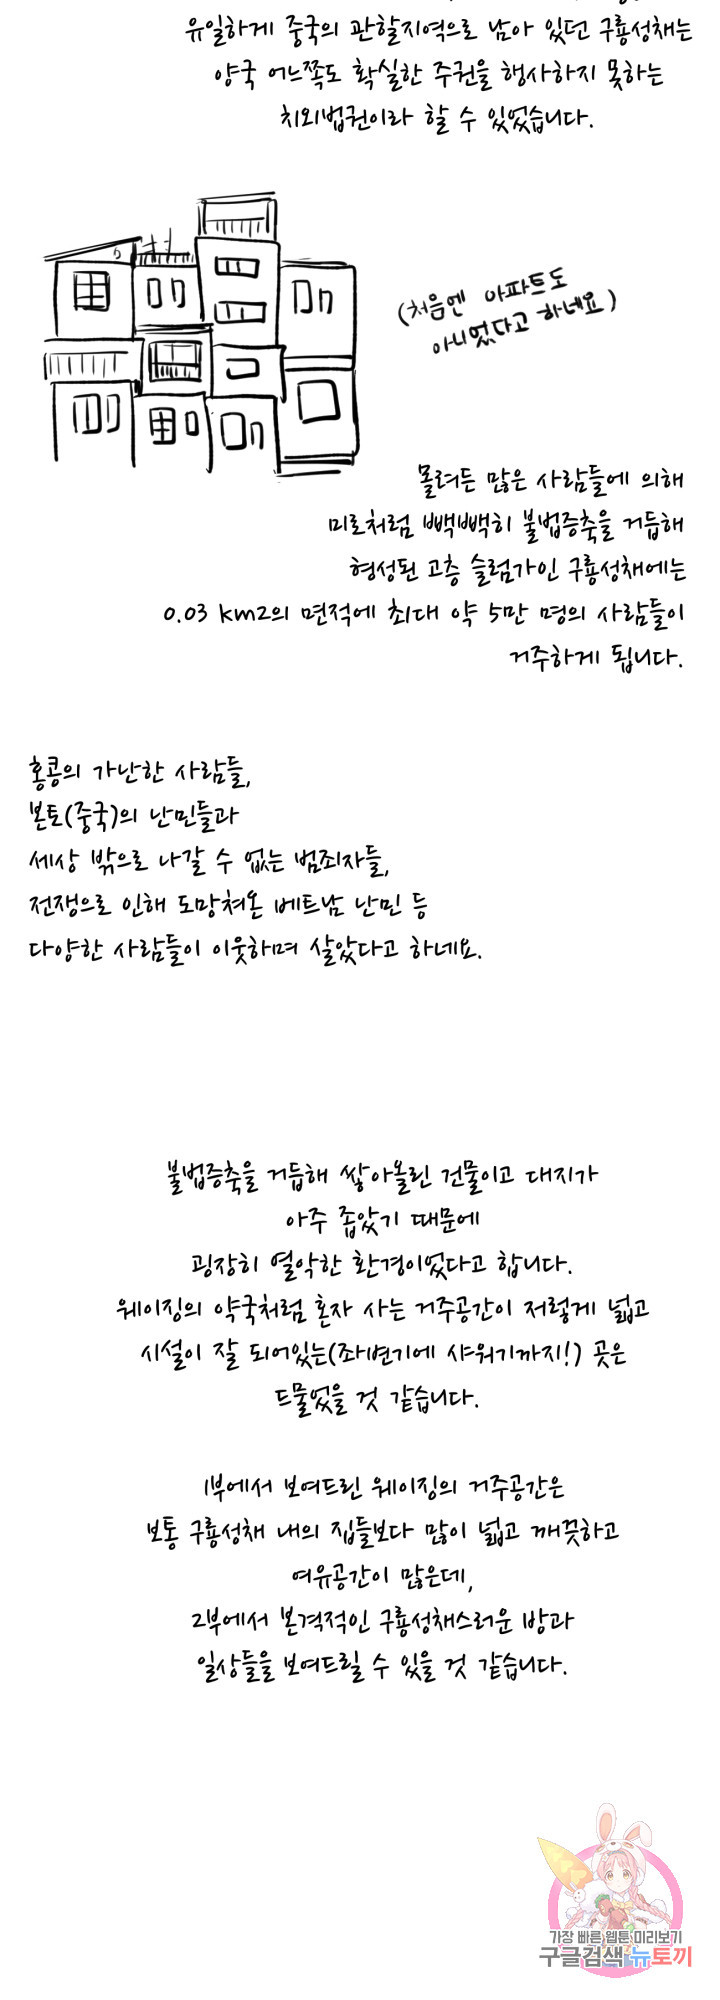 유일하게 중국의 관할지역으로 남아 있던 구룡성채는
양국 어느쪽도 확실한 주권을 행사하지 못하는
치외법권이라 할 수 있었습니다.
(처음엔 아파트도
아니었다고 하네요)
몰려든 많은 사람들에 의해
미로처럼 빽빽히 불법증축을 거듭해
형성된 고층 슬럼가인 구룡성채에는
0.03 km2의 면적에 최대 약 5만 명의 사람들이
거주하게 됩니다.
홍콩의 가난한 사람들,
본토(중국)의 난민들과
세상 밖으로 나갈 수 없는 범죄자들,
전쟁으로 인해 도망쳐온 베트남 난민 등
다양한 사람들이 이웃하며 살았다고 하네요.
불법증축을 거듭해 쌓아올린 건물이고 대지가
아주 좁았기 때문에
굉장히 열악한 환경이었다고 합니다.
웨이징의 약국처럼 혼자 사는 거주공간이 저렇게 넓고
시설이 잘 되어있는(좌변기에 샤워기까지!) 곳은
드물었을 것 같습니다.
1부에서 보여드린 웨이징의 거주공간은
보통 구룡성채 내의 집들보다 많이 넓고 깨끗하고
여유공간이 많은데,
2부에서 본격적인 구룡성채스러운 방과
일상들을 보여드릴 수 있을 것 같습니다.
가장 빠른 웹툰 미리보기
구글검색 뉴토끼